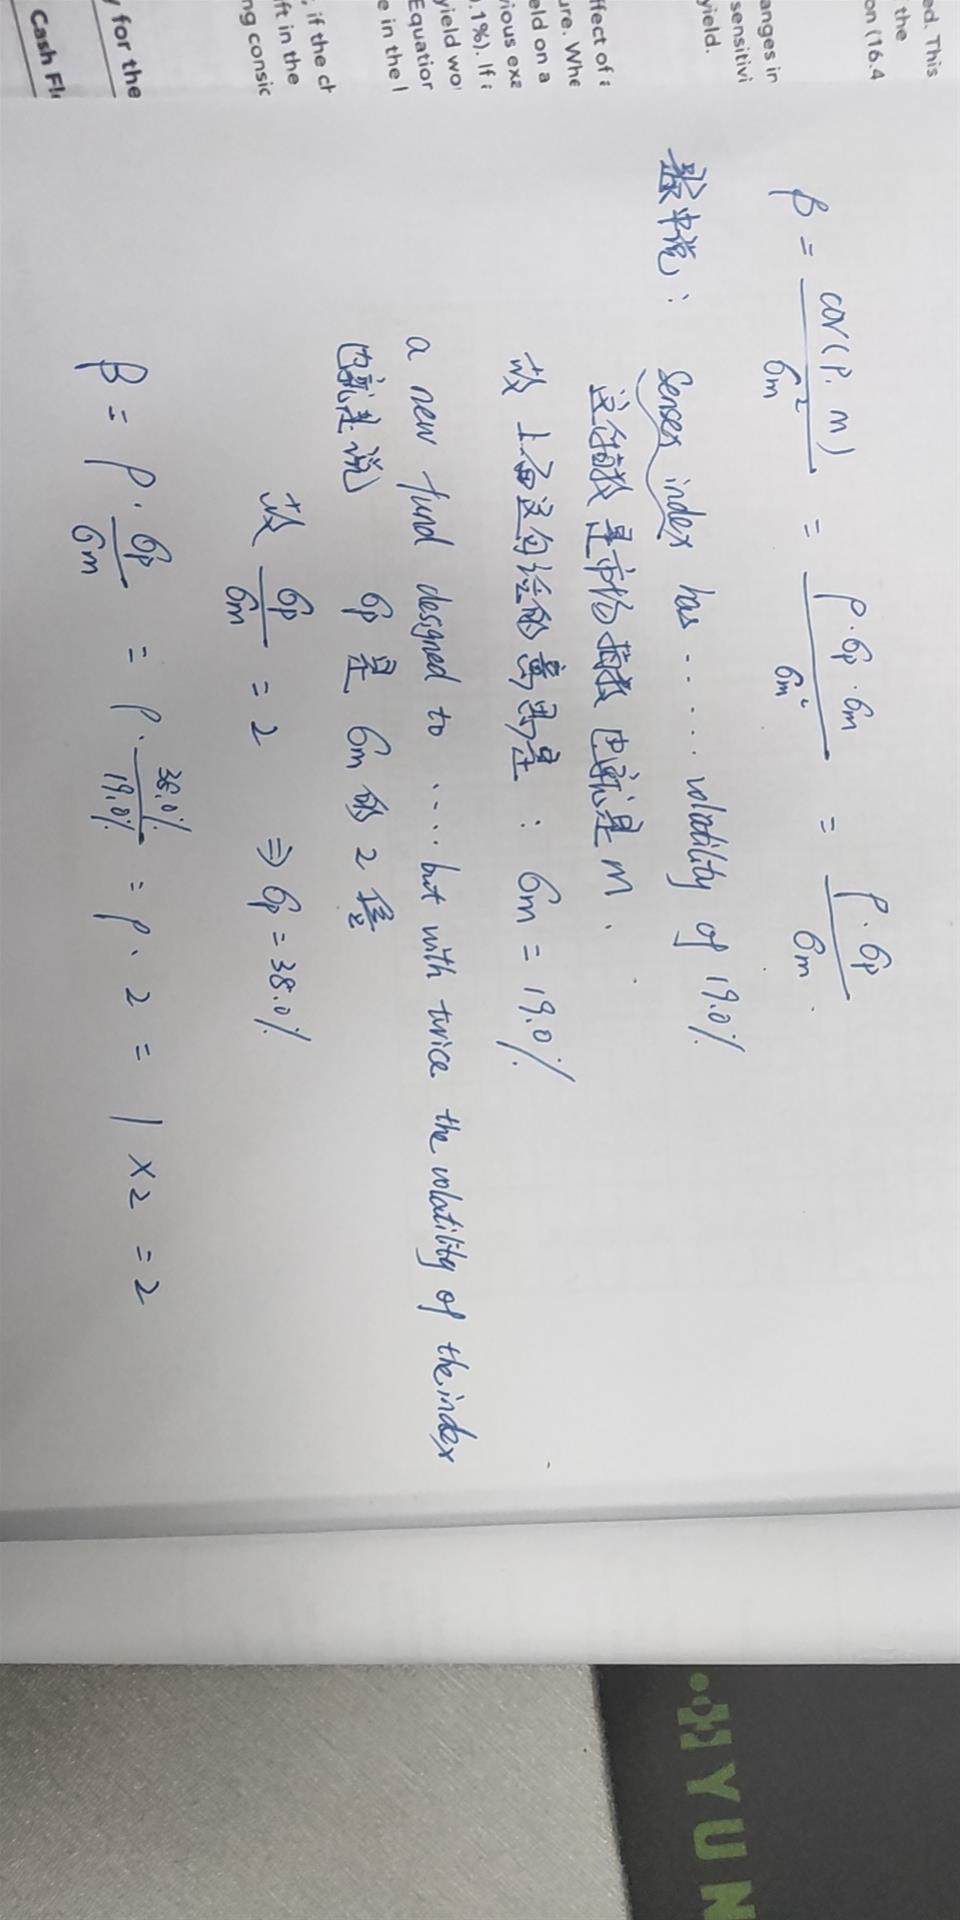 ed. This
the
on (16.4
anges in
sensitivi
yield.
ffect of a
ure. Whe
eld on a
vious exa
.1%). If a
yield wo
Equation
e in the l
; if the ch
ft in the
ng consic
y for the
Cash Fl
β = cov(p.m) / σm² = ρ·σp·σm / σm² = ρ·σp / σm .
题中说: Sensex index has ...... volatility of 19.0%
这个指数是市场指数 也就是 m .
故 上面这句给的意思是 : σm = 19.0%
a new fund designed to .... but with twice the volatility of the index
也就是说 σp 是 σm 的 2 倍
故 σp / σm = 2 ⇒ σp = 38.0%
β = ρ· σp / σm = ρ· 38.0% / 19.0% = ρ· 2 = 1 × 2 = 2
HYUN